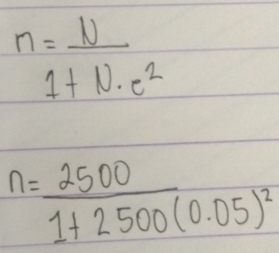 n = N
1 + N . e²
n = 2500
1 + 2500 (0.05)²